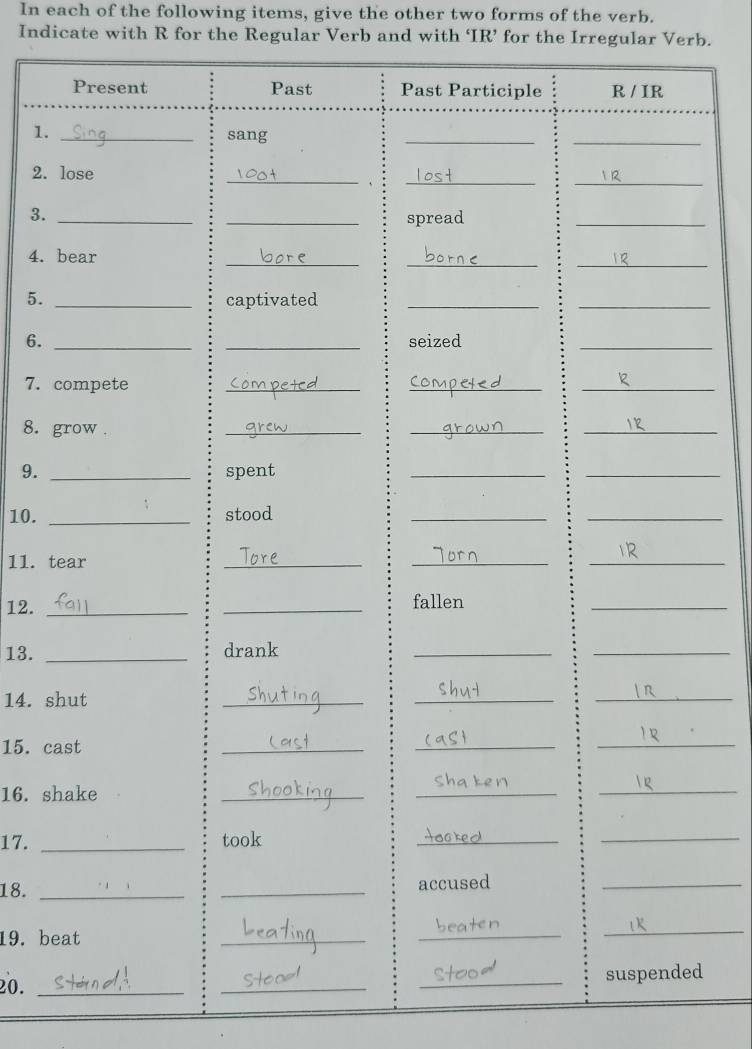 In each of the following items, give the other two forms of the verb.
Indicate with R for the Regular Verb and with ‘IR’ for the Irregular Verb.
Present Past Past Participle R / IR
1. Sing sang
2. lose loot lost IR
3. spread
4. bear bore borne IR
5. captivated
6. seized
7. compete competed competed R
8. grow . grew grown IR
9. spent
10. stood
11. tear Tore Torn IR
12. fall fallen
13. drank
14. shut Shuting shut IR
15. cast cast cast IR
16. shake Shooking shaken IR
17. took tooked
18. accused
19. beat beating beaten IR
20. stand stood stood suspended